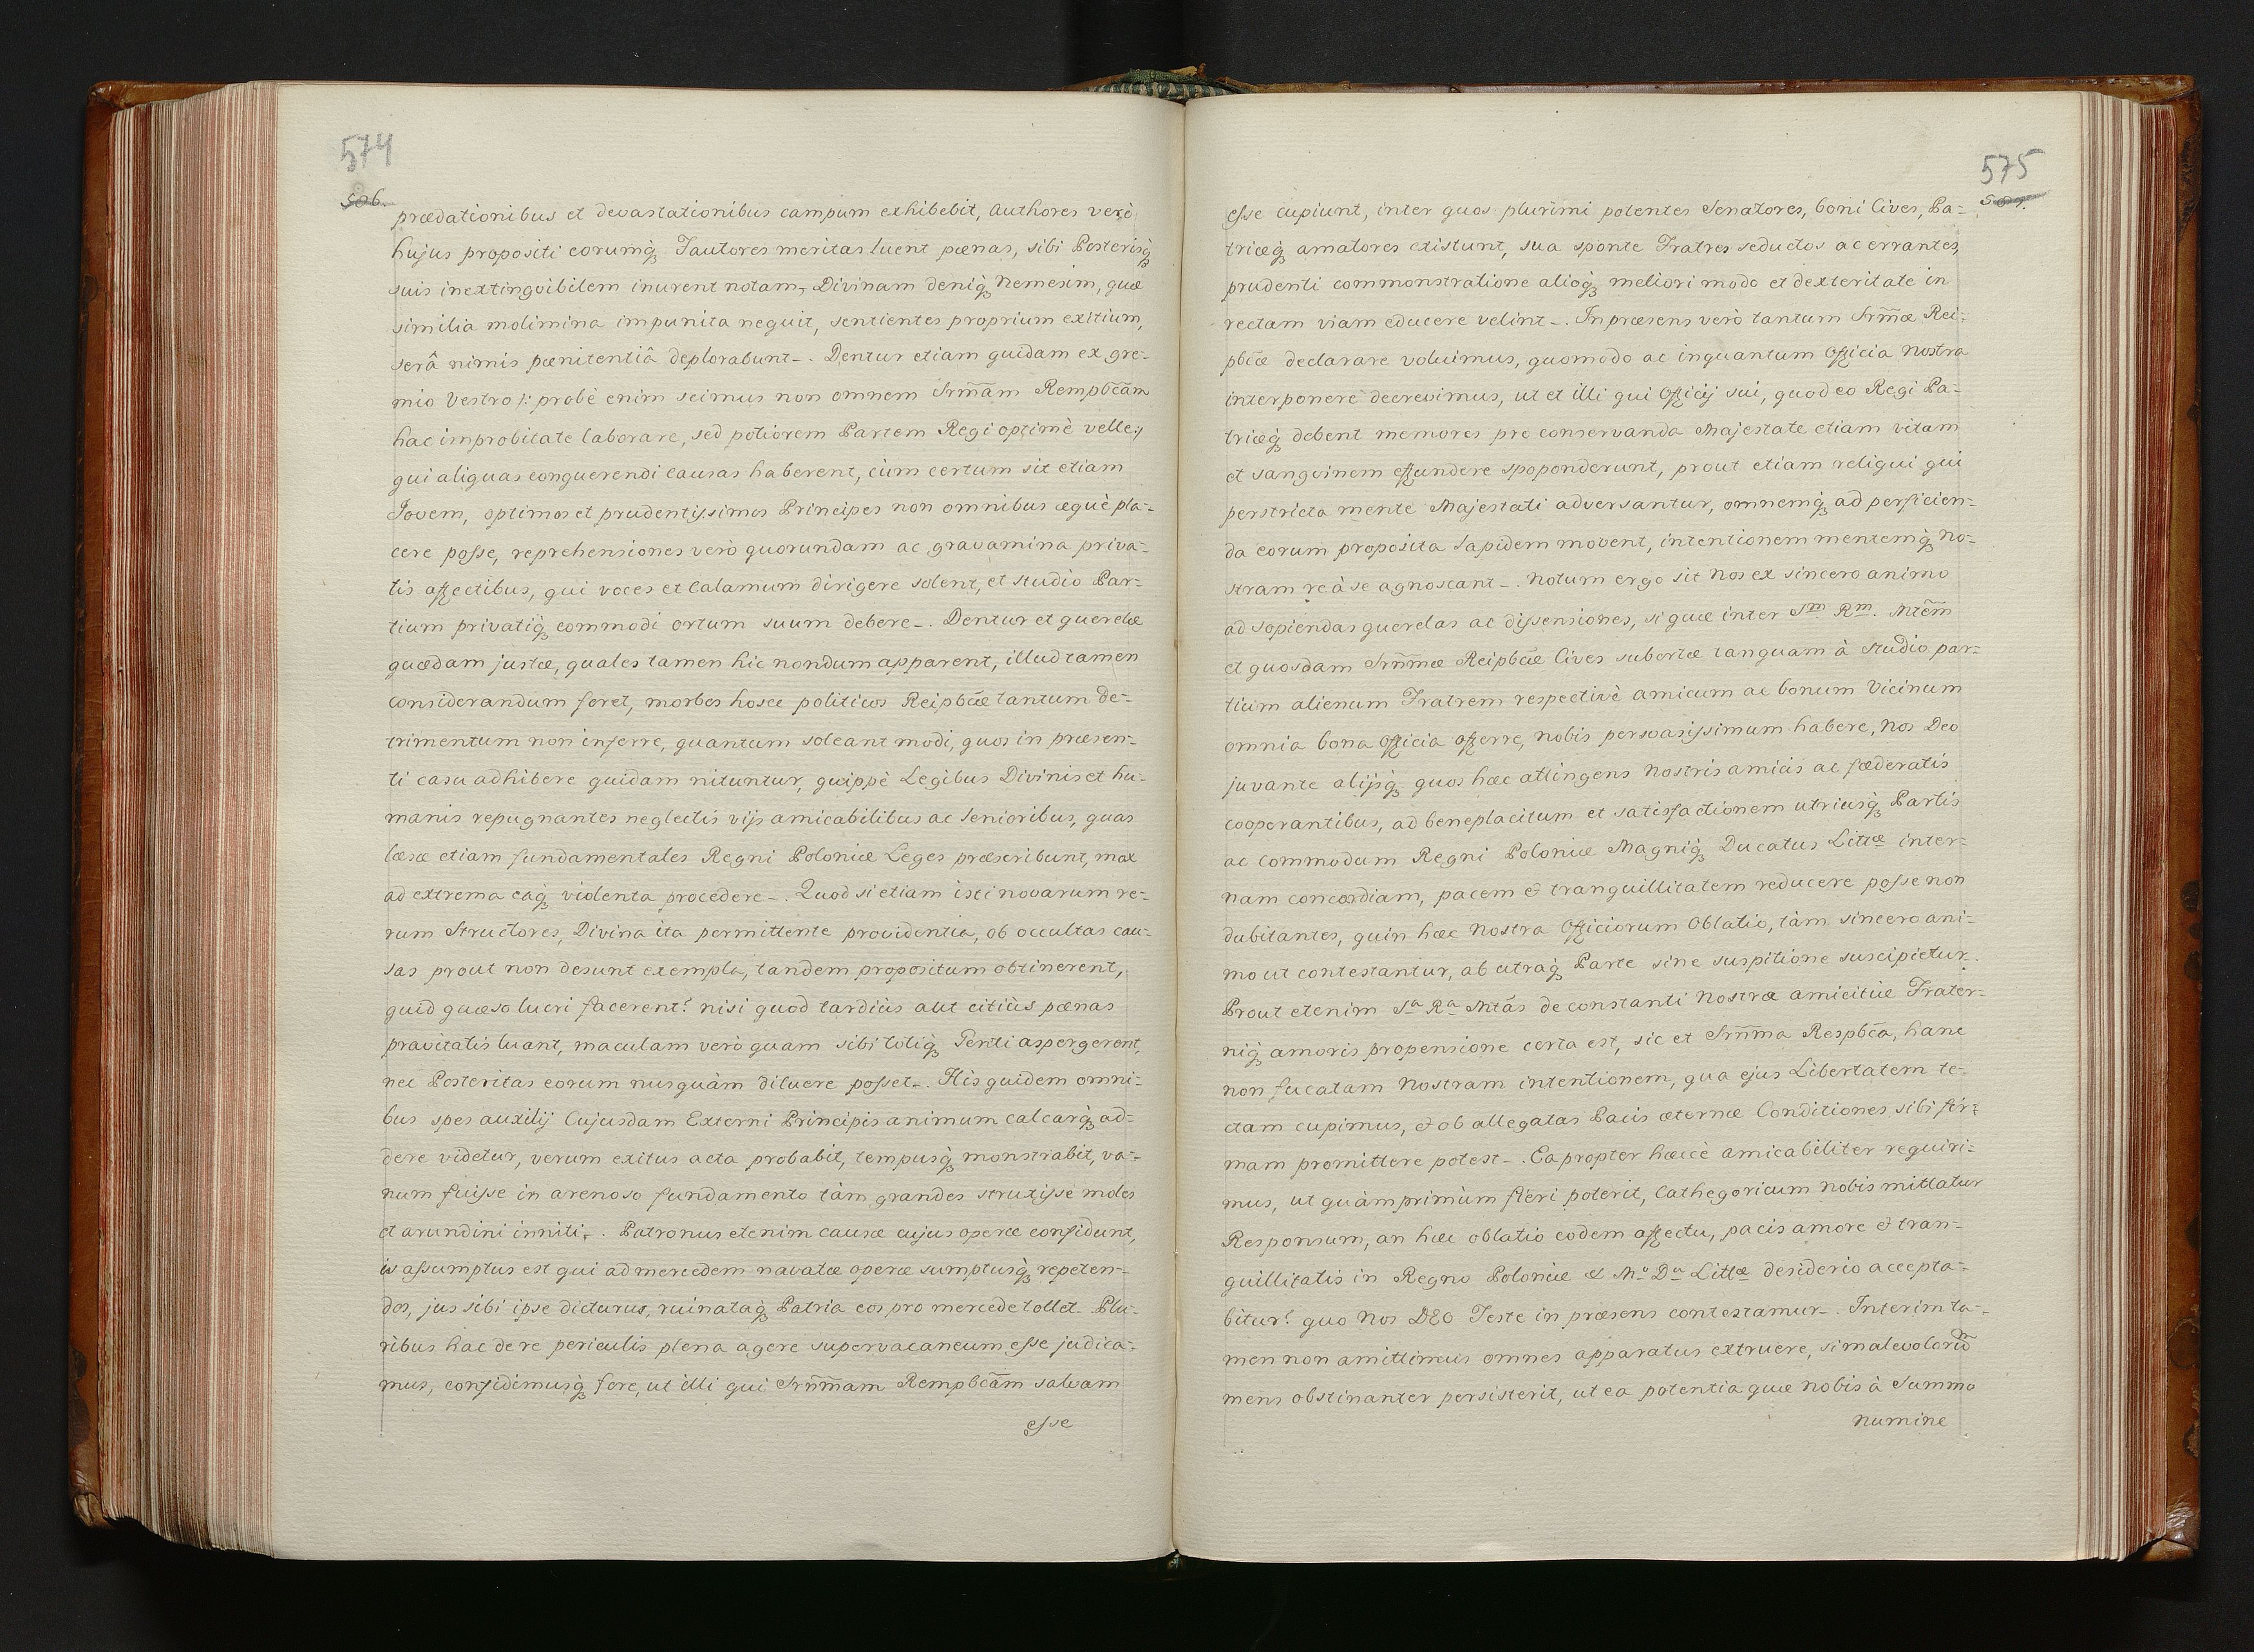 574
506.
prædationibus et devastationibus campum exhibebit, Authores verò
hujus propositi eorumq́ʒ Fautores meritas luent pœnas, sibi Posterisq́ʒ
suis inextingvibilem inurent notam, Divinam deniq́ʒ Nemesim, quæ
similia molimina impunita nequit, sentientes proprium exitium,
serâ nimis pœnitentiâ deplorabunt-. Dentur etiam quidam ex gre-
mio Vestro /: probè enim scimus non omnem Srm̃am Rempbc̃am
hac improbitate laborare, sed potiorem Partem Regi optimè velle:/
qui aliquas conquerendi causas haberent, cùm certum sit etiam
Jovem, optimos et prudentissimos Principes non omnibus æquè pla-
cere posse, reprehensiones verò quorundam ac gravamina priva-
tis affectibus, qui voces et Calamum dirigere solent, et studio Par-
tium privatiq́ʒ commodi ortum suum debere-. Dentur et querelæ
quædam justæ, quales tamen hic nondum apparent, illud tamen
considerandum foret, morbos hosce politicos Reipbc̃æ tantum de-
trimentum non inferre, quantum soleant modi, quos in præsen-
ti casu adhibere quidam nituntur, quippè Legibus Divinis et hu-
manis repugnantes neglectis vijs amicabilibus ac Senioribus, quas
læsæ etiam fundamentales Regni Poloniæ Leges præscribunt, mox
ad extrema eaq́ʒ violenta procedere-. Quod si etiam isti novarum re-
rum Structores, Divina ita permittente providentia, ob occultas cau-
sas prout non desunt exempla, tandem propositum obtinerent,
quid quæso lucri facerent? nisi quod tardiùs aut citiùs pœnas
pravitatis luant, maculam verò quam sibi totiq́ʒ Genti aspergerent,
nec Posteritas eorum nusquàm diluere posset-. His quidem omni-
bus spes auxilij Cujusdam Externi Principis animum calcarq́ʒ ad-
dere videtur, verum exitus acta probabit, tempusq́ʒ monstrabit, va-
num fuisse in arenoso fundamento tàm grandes struxisse moles
et arundini inniti-. Patronus etenim causæ cujus operæ confidunt,
is assumptus est qui ad mercedem navatæ operæ sumptusq́ʒ repeten-
dos, jus sibi ipse dicturus, ruinataq́ʒ Patria eos pro mercede tollet. Plu-
ribus hac de re periculis plena agere supervacaneum esse judica-
mus, confidimusq́ʒ fore, ut illi qui Srm̃mam Rempbc̃am salvam
esse
575
507.
esse cupiunt, inter quos plurimi potentes Senatores, boni Cives, Pa-
triæq́ʒ amatores existunt, sua sponte Fratres seductos ac errantes,
prudenti commonstratione alioq́ʒ meliori modo et dexteritate in
rectam viam educere velint-. In præsens verò tantum Srm̃æ Rei-
pbc̃æ declarare voluimus, quomodo ac inquantum Officia Nostra
interponere decrevimus, ut et illi qui Officij sui, quod eo Regi Pa-
triæq́ʒ debent memores pro conservanda Majestate etiam vitam
et sangvinem effundere spoponderunt, prout etiam reliqui qui
perstricta mente Majestati adversantur, omnemq́ʒ ad perficien-
da eorum proposita lapidem movent, intentionem mentemq́ʒ no-
stram re à se agnoscant-. Notum ergo sit Nos ex sincero animo
ad sopiendas querelas ac dissensiones, si quæ inter Sm Rm. Mtẽm
et quosdam Srm̃mæ Reipbc̃æ Cives subortæ tanquam à studio par-
tium alienum Fratrem respectivè amicum ac bonum Vicinum
omnia bona Officia offerre, nobis persvasissimum habere, Nos Deo
juvante alijsq́ʒ quos hæc attingens Nostris amicis ac fœderatis
cooperantibus, ad beneplacitum et satisfactionem utriusq́ʒ Partis
ac commodum Regni Poloniæ Magniq́ʒ Ducatus Littæ inter-
nam concordiam, pacem & tranquillitatem reducere posse non
dubitantes, quin hæc Nostra Officiorum Oblatio, tàm sincero ani-
mo ut contestantur, ab utraq́ʒ Parte sine suspitione suscipietur.
Prout etenim Sa Ra Mtás de constanti Nostræ amicitiæ Frater-
niq́ʒ amoris propensione certa est, sic et Srm̃ma Respbc̃a, hanc
non fucatam Nostram intentionem, qua ejus Libertatem te-
ctam cupimus, & ob allegatas Pacis æternæ Conditiones sibi fir-
mam promittere potest-. Ea propter hæcce amicabiliter requiri-
mus, ut quàm primùm fieri poterit, Cathegoricum Nobis mittatur
Responsum, an hæc oblatio eodem affectu, pacis amore & tran-
quillitatis in Regno Poloniæ & Mo Du Littæ desiderio accepta-
bitur? quo Nos DEO Teste in præsens contestamur-. Interim ta-
men non amittimus omnes apparatus extruere, si malevolorũ
mens obstinanter persisterit, ut ea potentia quæ Nobis à Summo
Numine